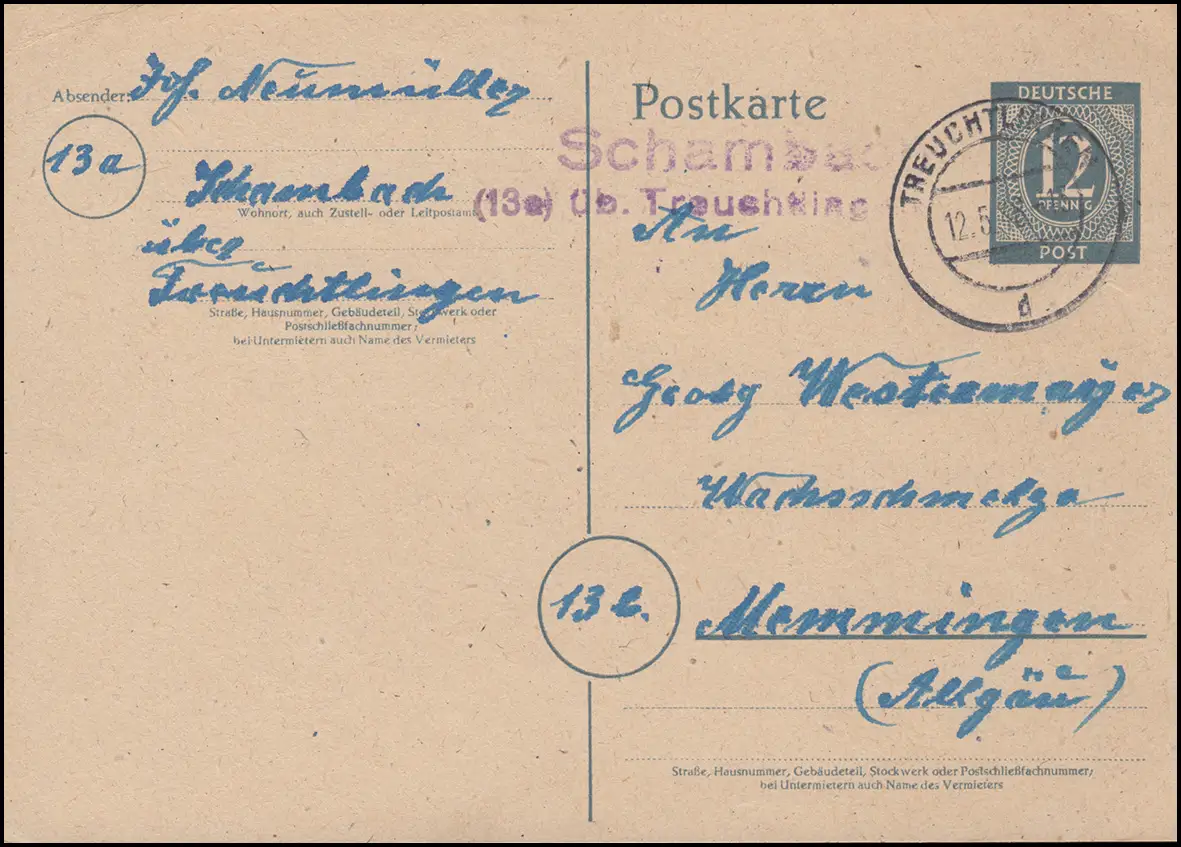 Absender: Joh. Neumüller
13a
Schambach
Wohnort, auch Zustell- oder Leitpostamt
über
Treuchtlingen
Straße, Hausnummer, Gebäudeteil, Stockwerk oder
Postschließfachnummer;
bei Untermietern auch Name des Vermieters
Postkarte
Schambac
(13a) üb. Treuchtling
DEUTSCHE
12
PFENNIG
POST
TREUCHTL
12.5
d
An
Herrn
Georg Westermayer
Wachsschmelze
13b.
Memmingen
(Allgäu)
Straße, Hausnummer, Gebäudeteil, Stockwerk oder Postschließfachnummer;
bei Untermietern auch Name des Vermieters